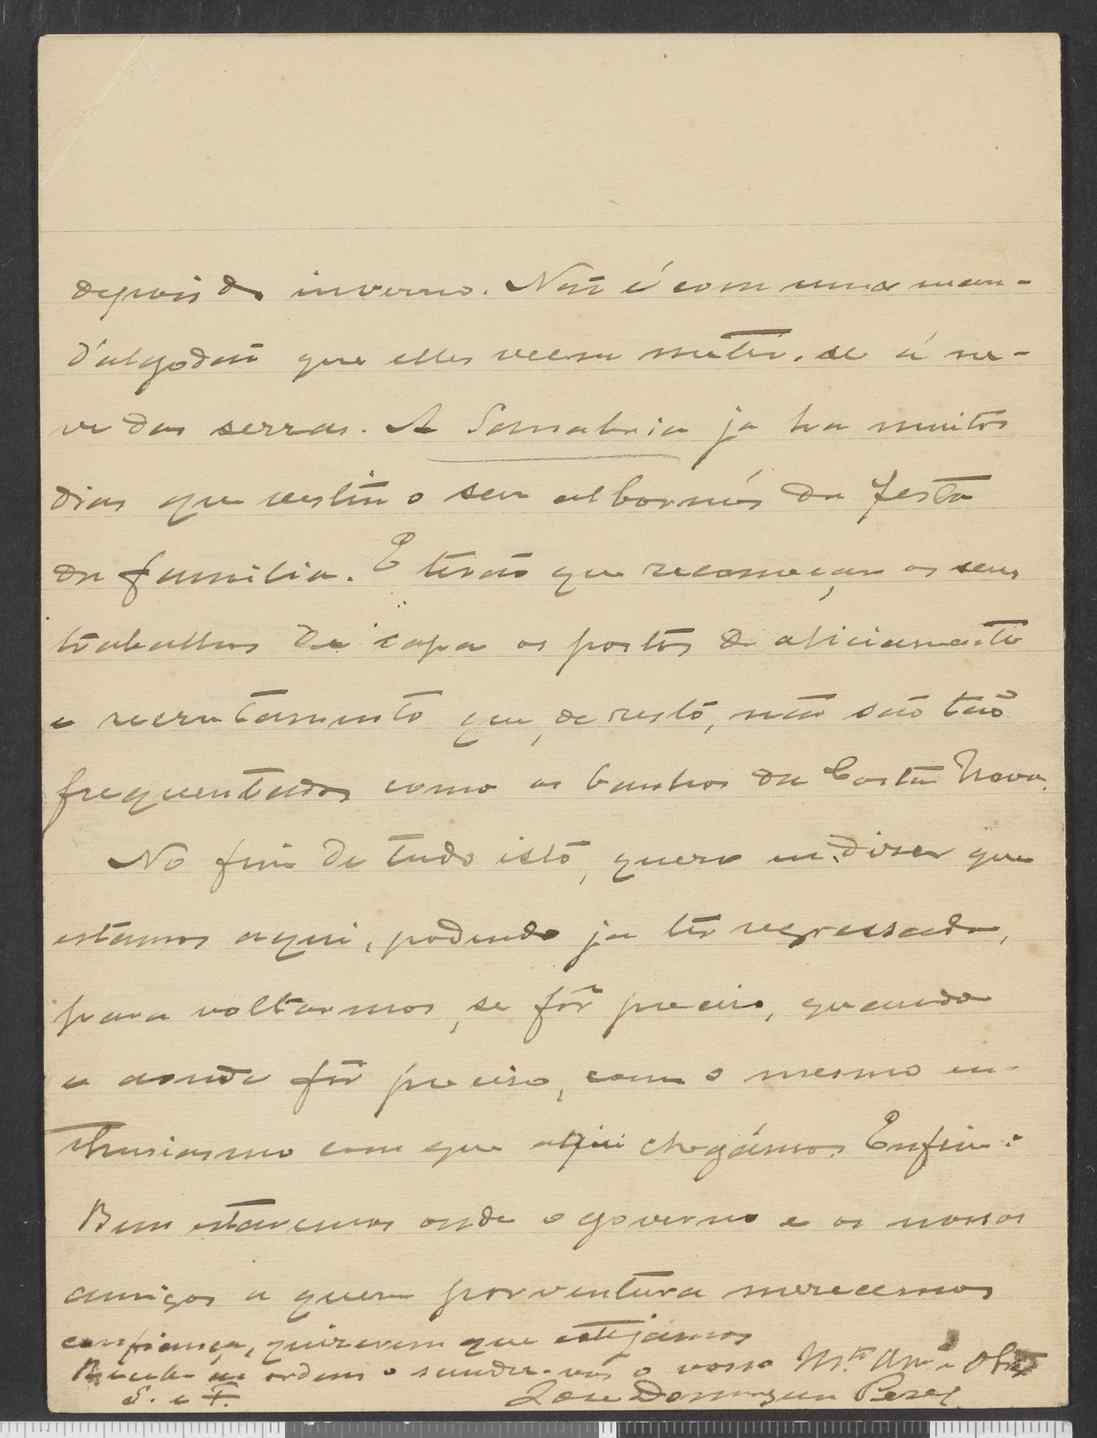 depois do inverno. Naõ é com uma man-
d'algodaõ que elles veem meter-se á ne-
ve das serras. A Sanabria ja ha muitos
dias que vestiu o seu albornós da festa
da familia. E teraõ que recomeçar os seus
trabalhos de capa os postos de aliciamento
e recrutamento que, de resto, não são tão
frequentados como os banhos da Costa Nova.
No fim de tudo isto, quero eu diser que
estamos aqui, podendo ja ter regressado,
para voltarmos, se fôr preciso, quando
e aonde fôr preciso, com o mesmo en-
thusiasmo com que aqui chegámos. Enfim:
Bem estaremos onde o governo e os nossos
amigos a quem porventura merecemos
confiança, quizerem que estejamos
ordens o vosso M.to Am.o Obg
S. e F. José Domingues Peres